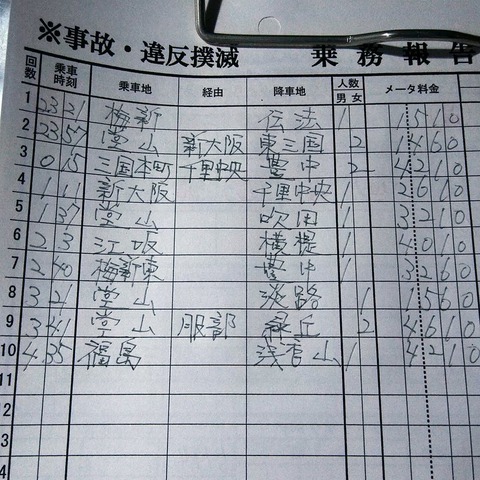 ※事故・違反撲滅 乗務報告
回数 乗車時刻 乗車地 経由 降車地 人数 男 女 メータ料金
1 23 21 梅新 伝法 1 1510
2 23 57 堂山 新大阪 東三国 2 1460
3 0 15 三国本町 千里中央 豊中 2 4210
4 1 11 新大阪 千里中央 1 2610
5 1 37 堂山 吹田 1 3210
6 2 3 江坂 横堤 1 4010
7 2 40 梅新東 豊中 1 3260
8 3 21 堂山 淡路 1 1560
9 3 41 堂山 服部 緑丘 2 4610
10 4 35 福島 浅香山 1 4210
11
2
3
4